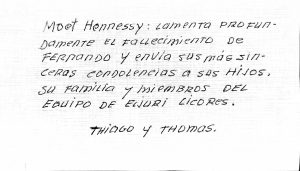 Moet Hennessy: Lamenta profun-
damente el fallecimiento de
Fernando y envía sus más sin-
ceras condolencias a sus hijos,
su familia y miembros del
equipo de Eljuri Licores.
Thiago y Thomas.